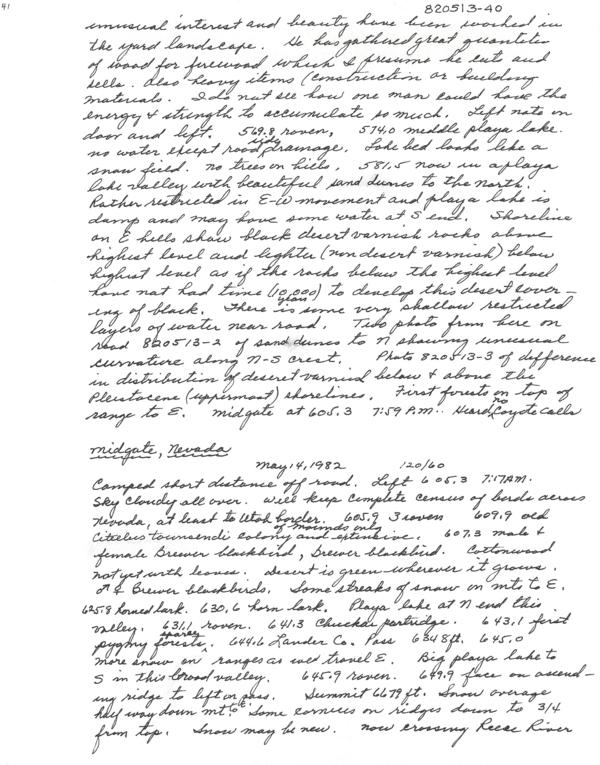 41
820513-40
unusual interest and beauty have been washed in
the yard landscape. He has gathered great quantities
of wood for firewood which I presume he cuts and
sells. Also heavy items (construction or building
materials. I do not see how one man could have the
energy & strength to accumulate so much. Left note on
door and left. 569.8 raven, 574.0 middle playa lake.
no water except road side drainage. Lake bed looks like a
snow field. no trees on hills, 581.5 now in a playa
lake valley with beautiful sand dunes to the north.
Rather restricted in E-W movement and playa lake is
damp and may have some water at S end. Shoreline
on E hills show black desert varnish rocks above
highest level and lighter (non desert varnish) below
highest level as if the rocks below the highest level
have not had time (10,000 years) to develop this desert cover-
ing of black. There is some very shallow restricted
layers of water near road. Two photo from here on
road 820513-2 of sand dunes to N showing unusual
curvature along N-S crest. Photo 820513-3 of difference
in distribution of desert varnish below & above the
Pleistocene (uppermost) shorelines. First forests on top of
range to E. midgate at 605.3 7:59 P.M. Heard no Coyote calls
midgate, Nevada
May 14, 1982 120/60
Camped short distance off road. Left 605.3 7:17 AM.
Sky cloudy all over. Will keep complete census of birds across
Nevada, at least to Utah border. 605.9 3 raven 609.9 old
Citellus townsendi colony of mounds only and extensive. 607.3 male &
female Brewer blackbird, Brewer blackbird. Cottonwood
not yet with leaves. Desert is green wherever it grows.
♂ & Brewer blackbirds. Some streaks of snow on mts to E.
625.8 horned lark. 630.6 horn lark. Playa lake at N end this
valley. 631.1 raven. 641.3 Chuckar partridge. 643.1 first
pygmy forests sparse. 644.6 Lander Co. Pass 6348 ft. 645.0
more snow on ranges as we travel E. Big playa lake to
S in this broad valley. 645.9 raven. 649.9 face on ascend-
ing ridge to left on pass. Summit 6679 ft. Snow average
half way down mt. to E. Some cornices on ridges down to 3/4
from top. Snow may be new. now crossing Reese River